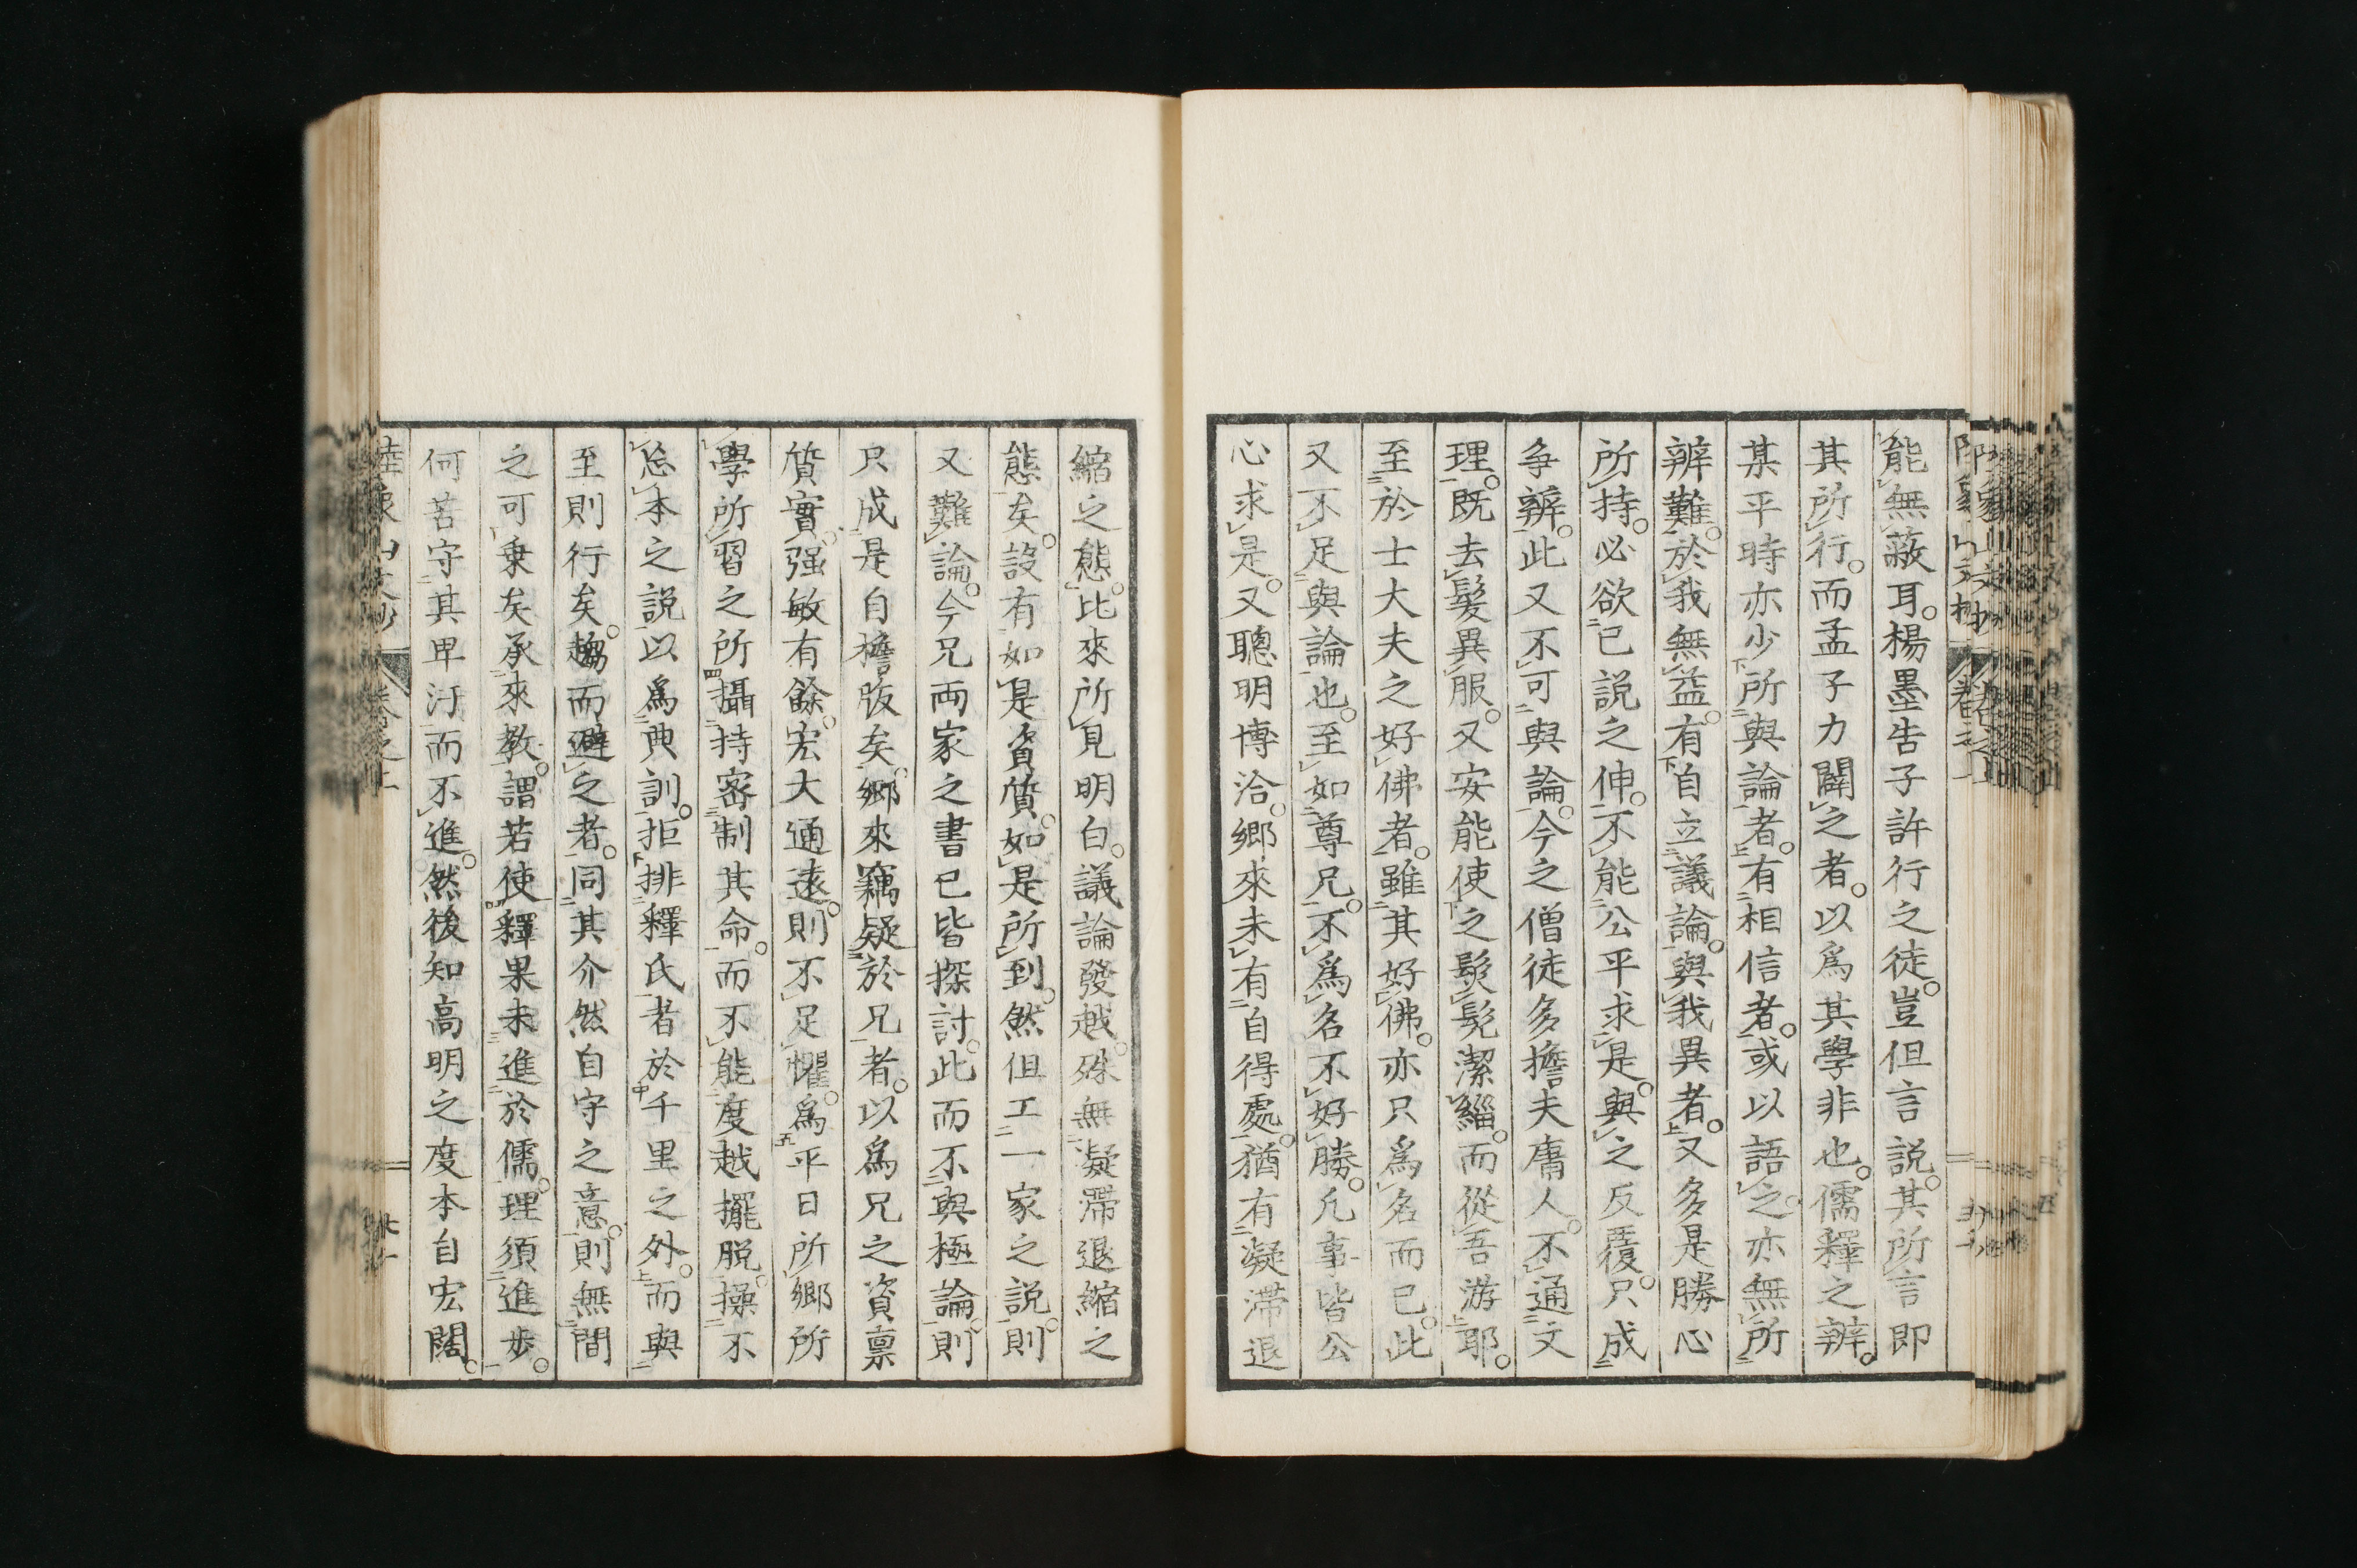 能無蔽耳。楊墨告子許行之徒。豈但言説。其所言即
其所行。而孟子力闢之者。以爲其學非也。儒釋之辨。
某平時亦少所與論者。有相信者。或以語之。亦無所
辨難。於我無益。有自立議論。與我異者。又多是勝心
所持。必欲己説之伸。不能公平求是。與之反覆。只成
争辨。此又不可與論。今之僧徒多擔夫庸人。不通文
理。既去髮異服。又安能使之髮髡潔緇。而從吾游耶。
至於士大夫之好佛者。雖其好佛。亦只爲名而已。此
又不足與論也。至如尊兄。不爲名不好勝。凡事皆公
心求是。又聰明博洽。鄉來未有自得處。猶有凝滯退
縮之態。比來所見明白。議論發越。殊無凝滯退縮之
態矣。設有如是資質。如是所到。然但工一家之説。則
又難論。今兄両家之書已皆探討。此而不與極論。則
只成是自擔版矣。鄉來竊疑於兄者。以爲兄之資禀
質實。强敏有餘。宏大通遠。則不足懼。爲平日所鄉所
學所習之所攝持密制其命。而不能度越擺脱。操不
忘本之説以爲典訓。拒排釋氏者於千里之外。而與
至則行矣。而避之者。同其介然自守之意。則無間
之可乗矣承來教。謂若使釋果未進於儒。理須進歩。
何苦守其卑汙而不進。然後知高明之度本自宏闊。